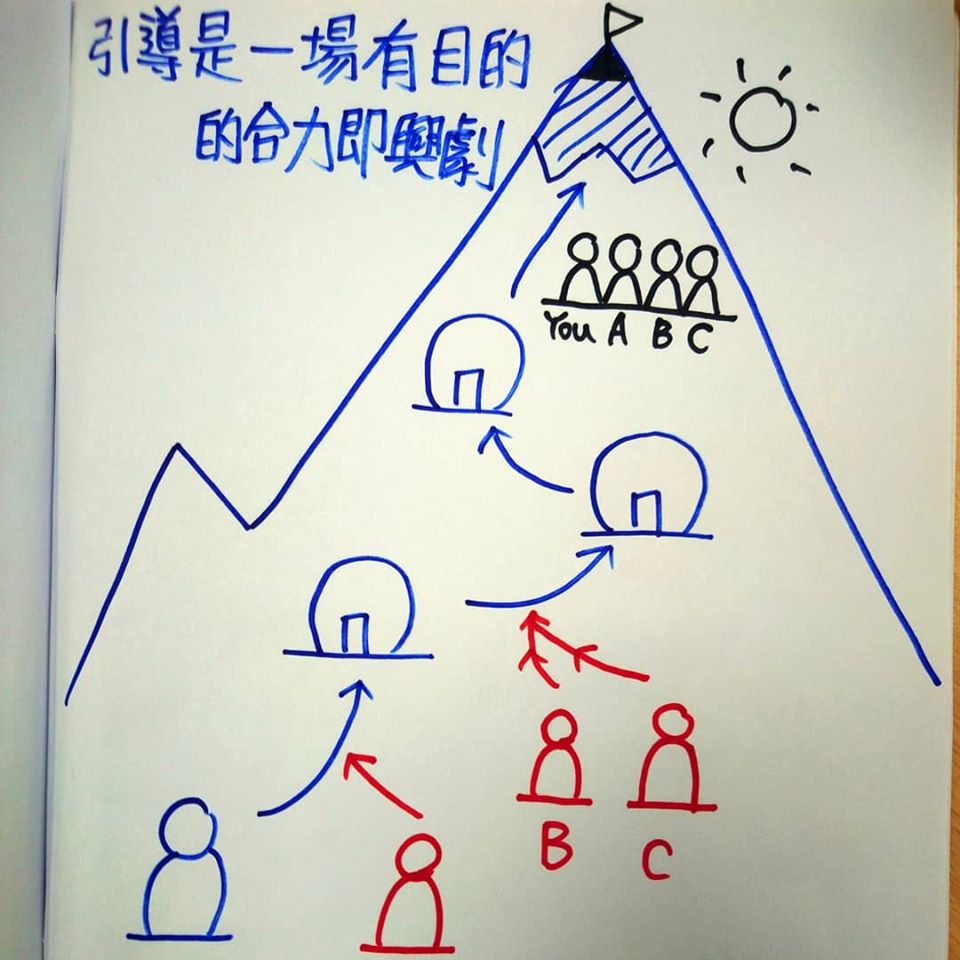 引導是一場有目的
的合力即興劇
You A B C
B C